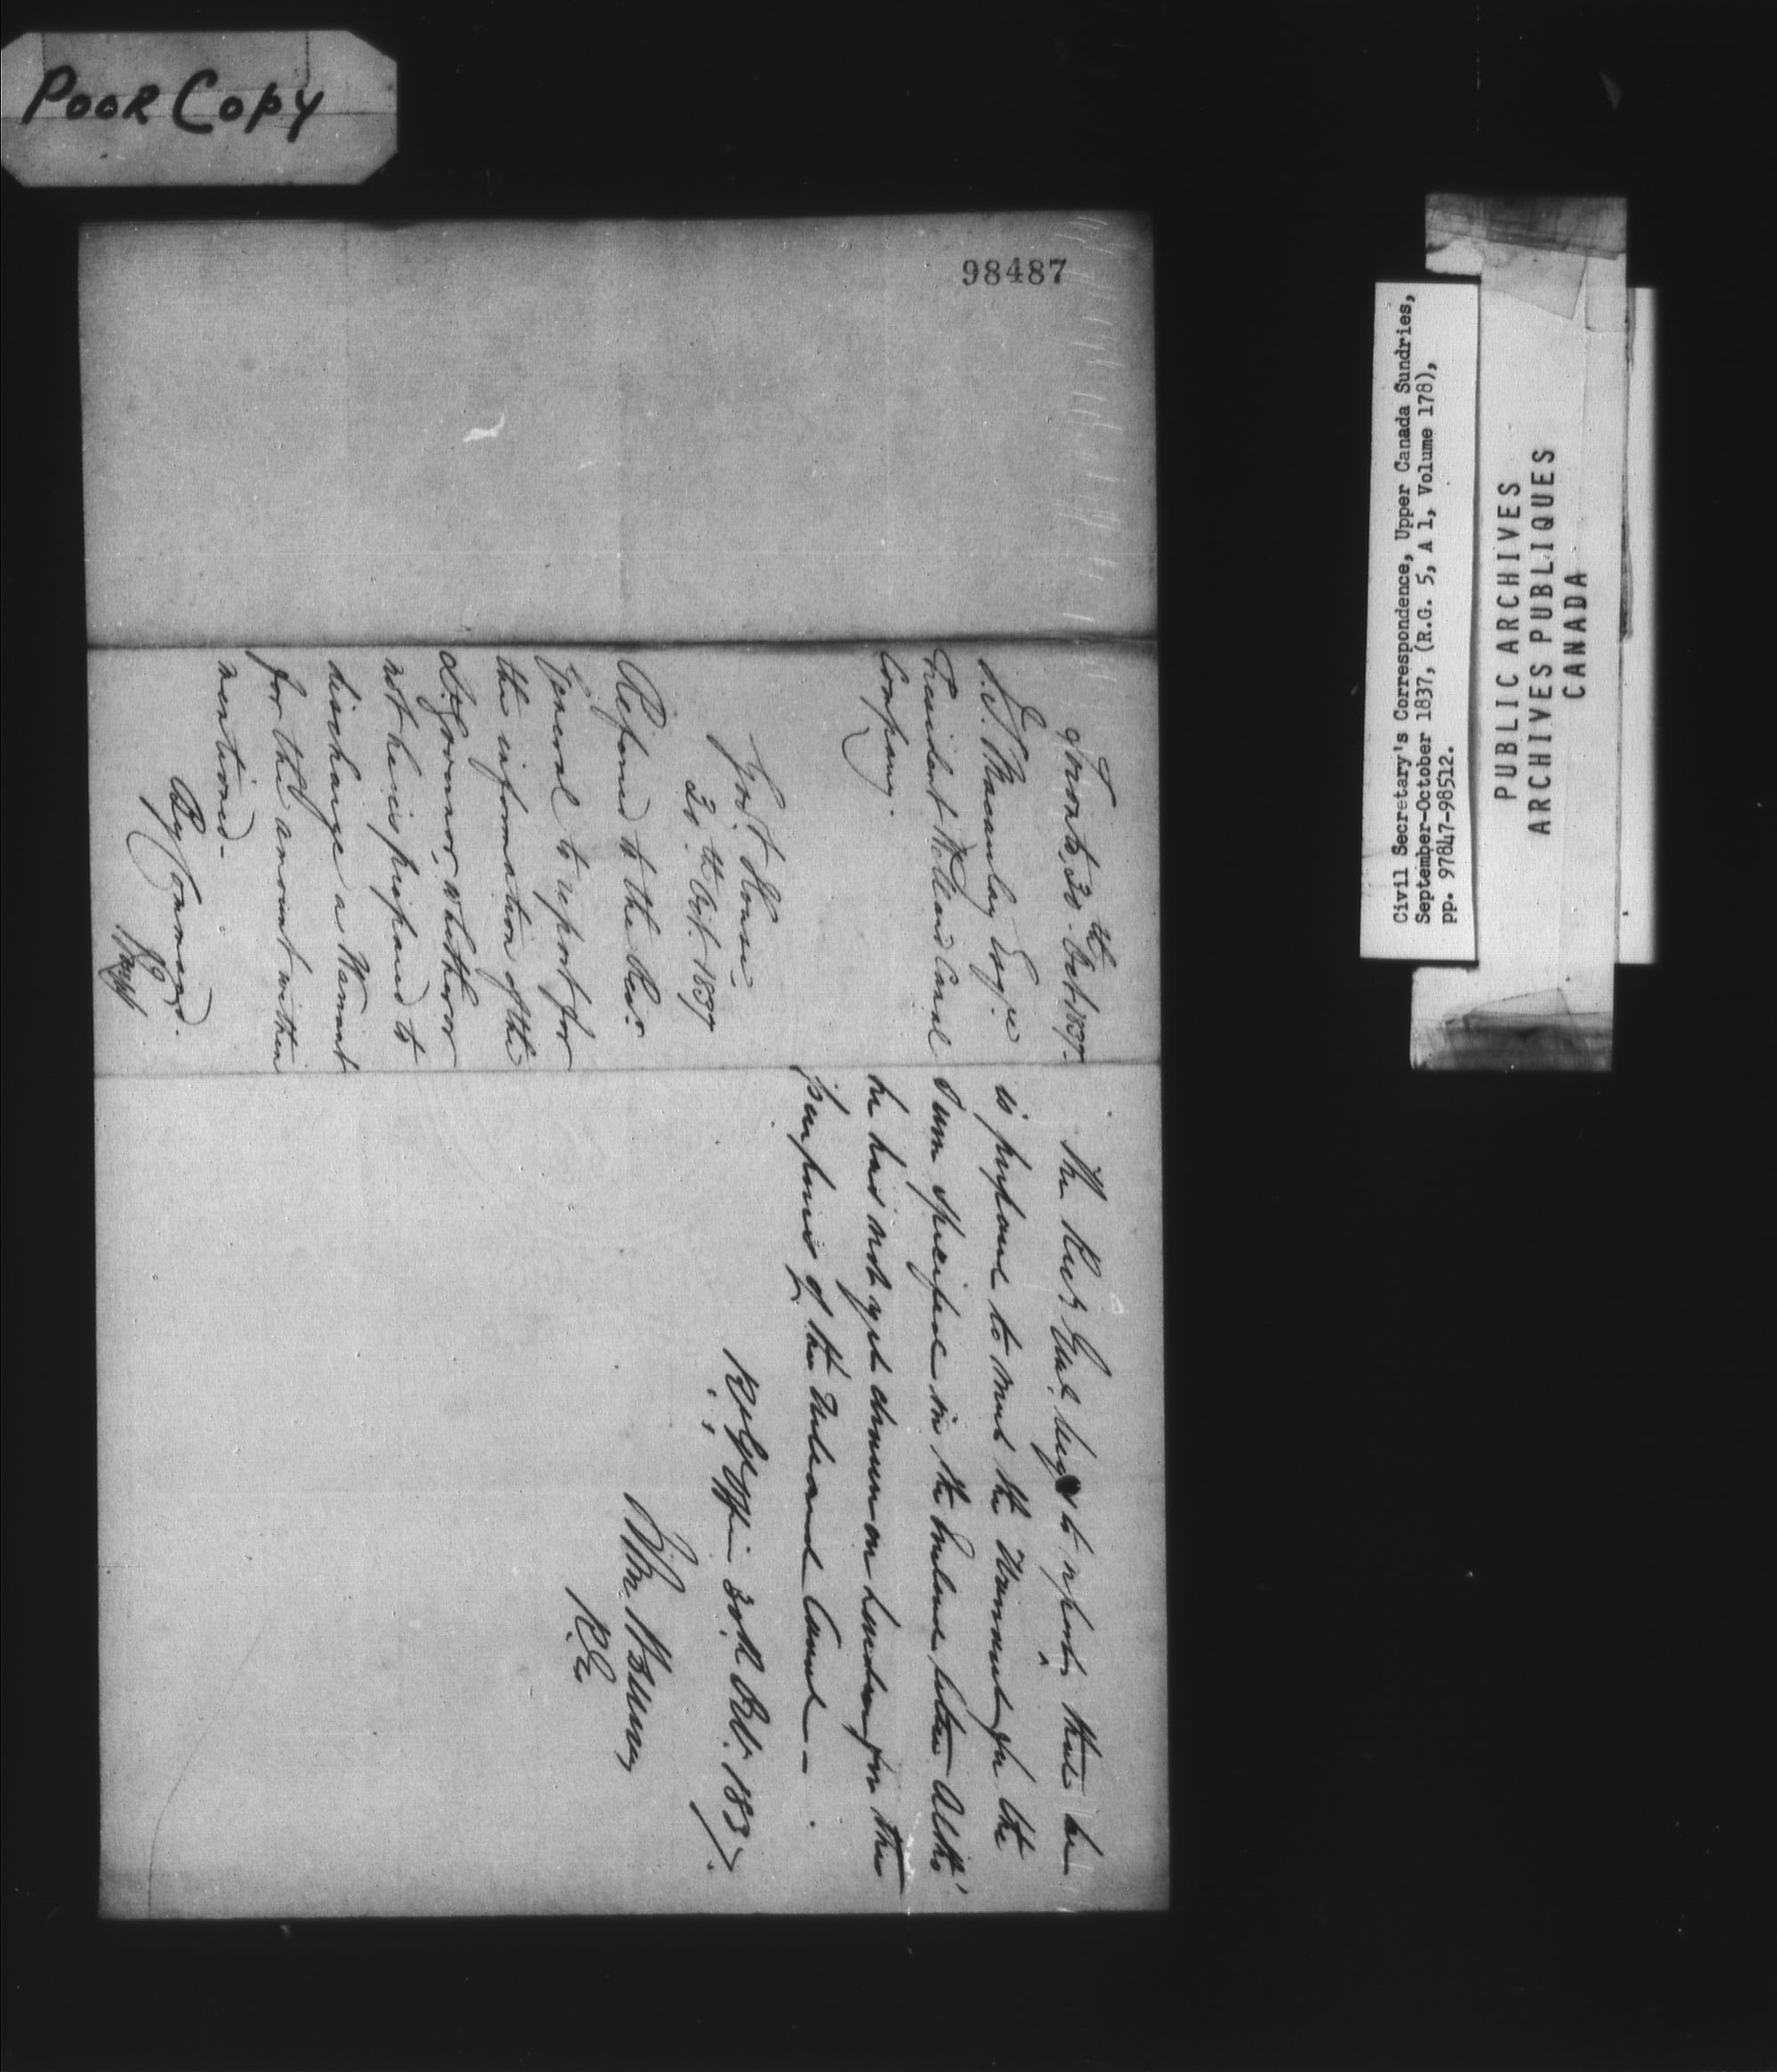 POOR COPY
98487
Toronto, 30th Oct. 1837.
J. S. Macaulay Esqre
President Welland Canal
Company.
Govt. House.
30th Octr. 1837
Referred to the Recr.
General to report for
the information of the
Lt. Governor, whether or
not he is prepared to
discharge a Warrant
for the amount within
mentioned.
By Command.
The Recr Genl. begs to report that he
is prepared to meet the Warrant for the
Sum specified in the Enclosed letter Altho'
he has not yet drawn on London for the
purposes of the Welland Canal —
R. Gl's Office 30th Oct. 1837.
R.G.
Civil Secretary's Correspondence, Upper Canada Sundries,
September-October 1837, (R.G. 5, A 1, Volume 178),
pp. 97847-98512.
PUBLIC ARCHIVES
ARCHIVES PUBLIQUES
CANADA